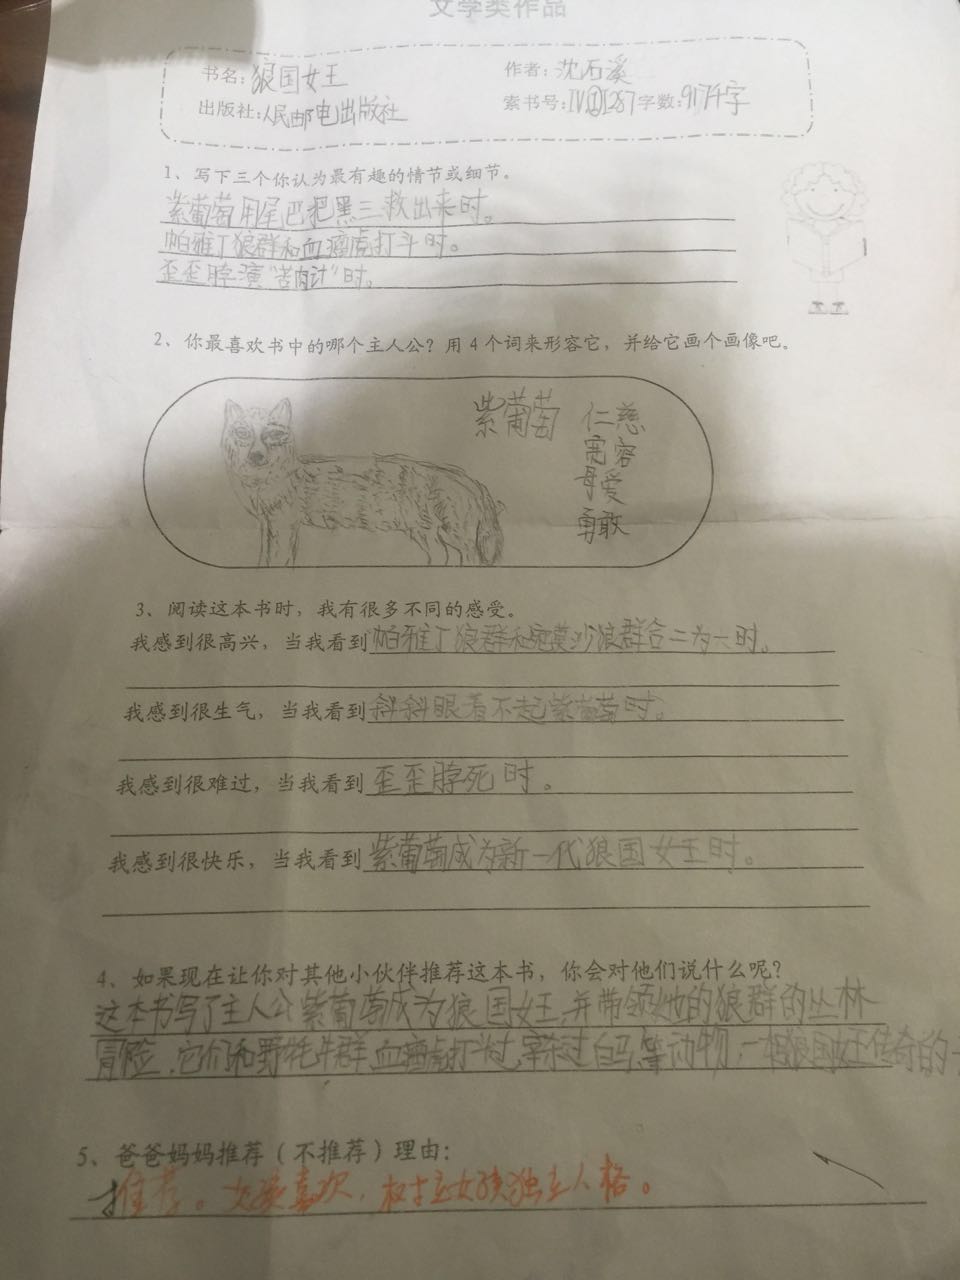 文学类作品
书名:狼国女王
作者:沈石溪
出版社:人民邮电出版社
索书号:IV②I287字数:917千字
1、写下三个你认为最有趣的情节或细节。
紫葡萄用尾巴把黑三救出来时。
帕雅丁狼群和血瘤虎打斗时。
歪歪脖演“苦肉计”时。
2、你最喜欢书中的哪个主人公？用4个词来形容它，并给它画个画像吧。
紫葡萄
仁慈
宽容
母爱
勇敢
3、阅读这本书时，我有很多不同的感受。
我感到很高兴，当我看到帕雅丁狼群和宛莫沙狼群合二为一时。
我感到很生气，当我看到斜斜眼看不起紫葡萄时。
我感到很难过，当我看到歪歪脖死时。
我感到很快乐，当我看到紫葡萄成为新一代狼国女王时。
4、如果现在让你对其他小伙伴推荐这本书，你会对他们说什么呢？
这本书写了主人公紫葡萄成为狼国女王,并带领她的狼群的丛林
冒险,它们和野牦牛群,血瘤虎打斗过,宰杀过白马等动物,一相狼国女王传奇的一
5、爸爸妈妈推荐（不推荐）理由:
推荐。女孩喜欢，树立女孩独立人格。